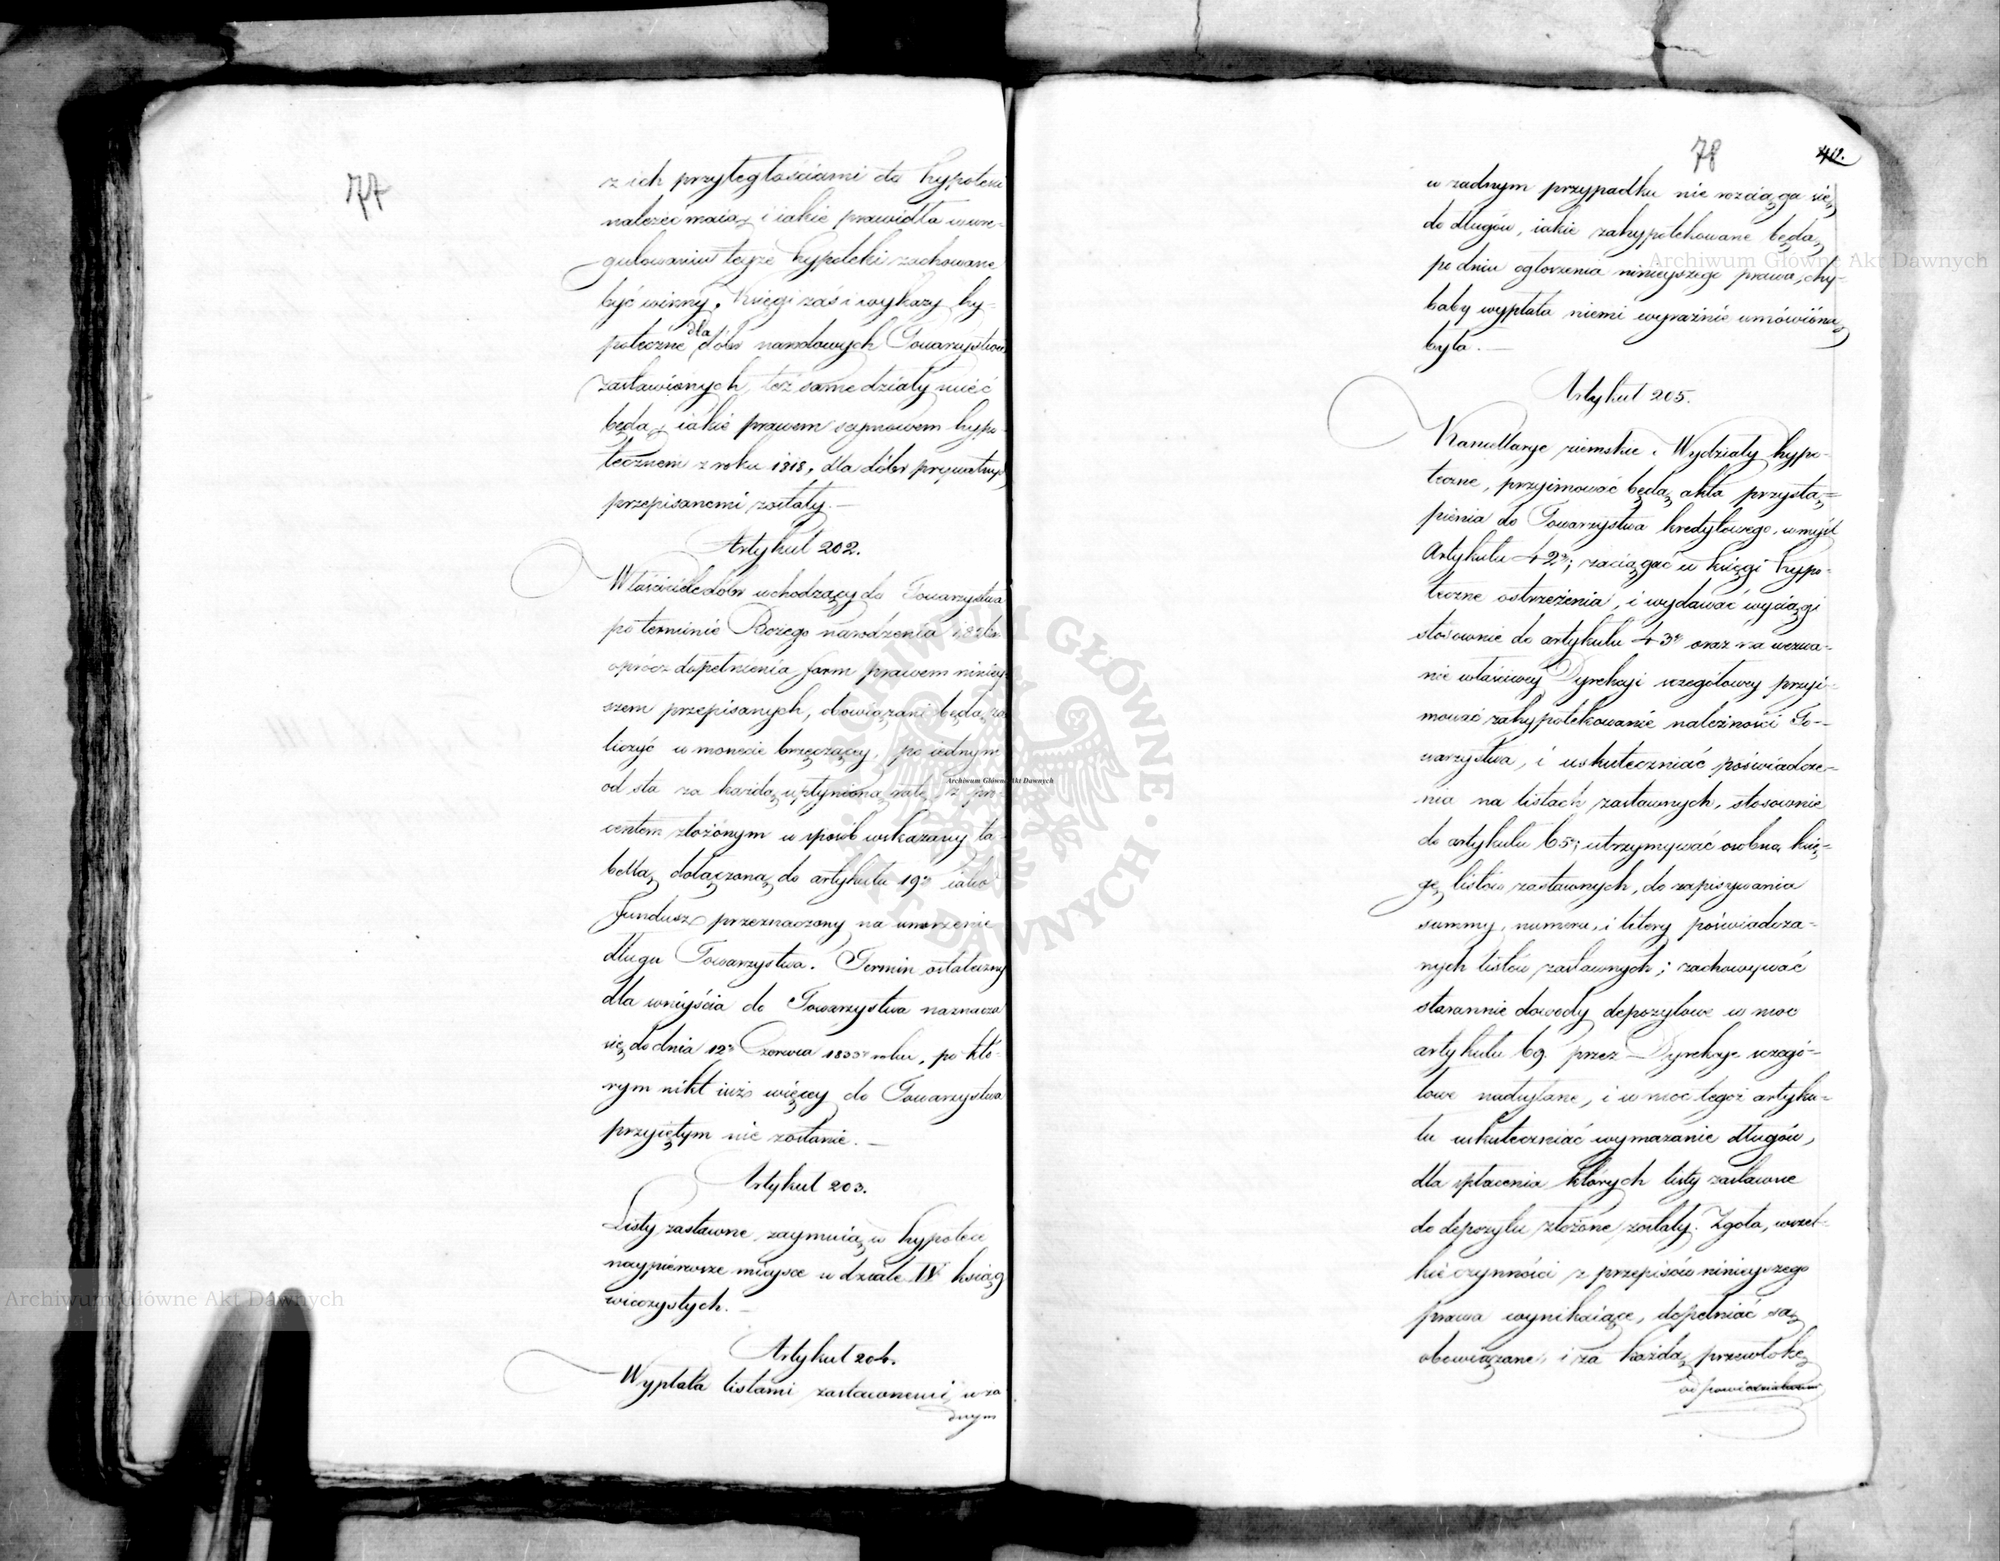 77
z ich przyległościami do hypoteki
należeć maią, i iakie prawidła w ure-
gulowaniu teyże hypoteki zachowane
być winny. Księgi zaś i wykazy hy-
poteczne dla dóbr narodowych Towarzystwu
zastawionych, też same działy mieć
będą, iakie prawem seymowem hypo-
tecznem z roku 1818, dla dóbr prywatnych
przepisanemi zostały. —
Artykuł 202.
Właściciele dóbr wchodzący do Towarzystwa
po terminie Bożego narodzenia
oprócz dopełnienia form prawem niniey-
szem przepisanych, obowiązani będą za
liczyć w monecie brzęczącey, po iednym
od sta za każdą upłynioną ratę z pro-
centem złożonym w sposób wskazany ta-
bellą dołączoną do artykułu 19º iako
fundusz przeznaczony na umorzenie
długu Towarzystwa. Termin ostateczny
dla wniyścia do Towarzystwa naznacza
się do dnia 12º Czerwca 1833º roku, po któ-
rym nikt iuż więcey do Towarzystwa
przyiętym nie zostanie. —
Artykuł 203.
Listy zastawne, zaymuią w hypotece
naypierwsze mieysce w dziale IV ksiąg
wieczystych. —
Artykuł 204.
Wypłata listami zastawnemi, w ża
dnym
78
w żadnym przypadku nie rozciąga się
do długów, iakie zahypotekowane będą
po dniu ogłoszenia ninieyszego prawa, chy-
baby wypłata niemi wyraźnie umówiona
była. —
Artykuł 205.
Kancellarye ziemskie i Wydziały hypo-
teczne, przyimować będą akta przystą-
pienia do Towarzystwa kredytowego, w myśl
Artykułu 42º; zaciągać w księgi hypo-
teczne ostrzeżenia, i wydawać wyciągi
stosownie do artykułu 43º oraz na wezwa-
nie właściwey Dyrekcyi szczegółowey przyi-
mować zahypotekowanie należności To-
warzystwa, i uskuteczniać poświadcze-
nia na listach zastawnych, stosownie
do artykułu 65º; utrzymywać osobną księ-
gę listów zastawnych, do zapisywania
summy, numeru, i litery poświadcza-
nych listów zastawnych; zachowywać
starannie dowody depozytowe w moc
artykułu 69. przez Dyrekcye szczegó-
łowe nadsyłane, i w moc tegoż artyku-
łu uskuteczniać wymazanie długów,
dla spłacenia których listy zastawne
do depozytu złożone zostały. Zgoła, wszel-
kie czynności z przepisów ninieyszego
prawa wynikaiące, dopełniać są
obowiązane, i za każdą przewłokę
odpowiedzialnemi
Archiwum Główne Akt Dawnych
Archiwum Główne Akt Dawnych
Archiwum Główne Akt Dawnych
ARCHIWUM GŁÓWNE AKT DAWNYCH